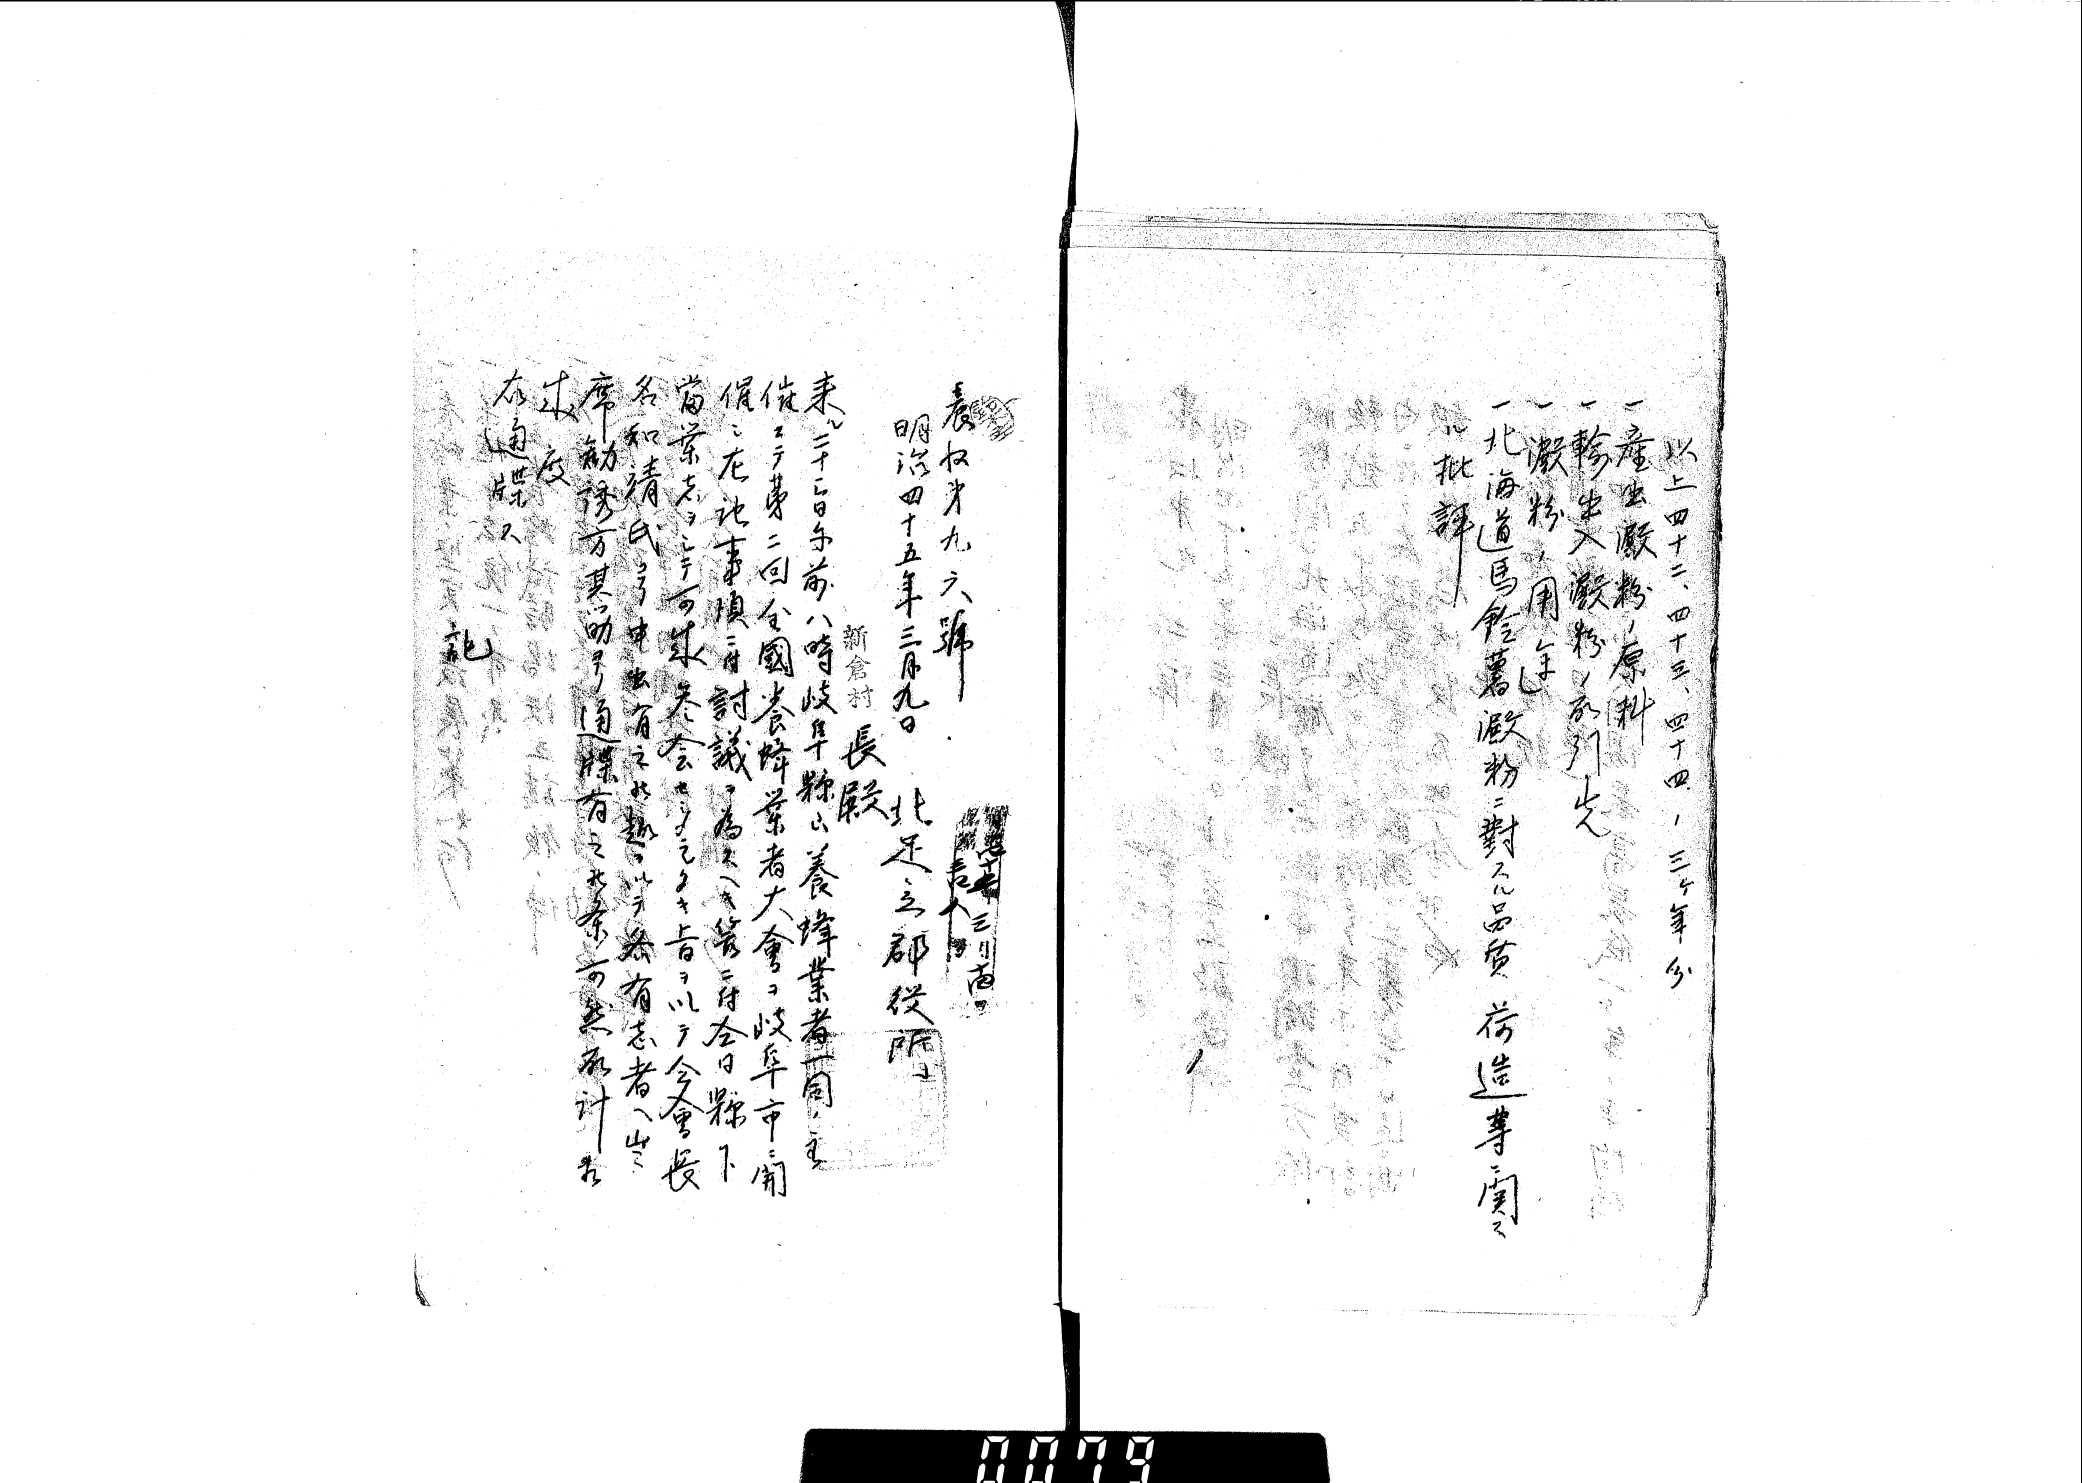 以上四十二、四十三、四十四、三ケ年分
一産出澱粉ノ原料
一輸出入澱粉ノ取引先
一澱粉ノ用途
一北海道馬鈴薯澱粉ニ對スル品質荷造等ニ関ス
ル批評
農收第九六號
明治四十五年三月九日
北足立郡役所
新倉村長殿
来ル二十二日午前八時岐阜縣山養蜂業者一同ノ主
催ニテ第二回全國養蜂業者大會ヲ岐阜市ニ開
催シ左記事項ニ付討議ヲ為スヘキ筈ニ付今日縣下
當業者ヲシテ可成参会セシメラレタキ旨ヲ以テ今會長
名和靖氏ヨリ申出有之候趣ヲ以テ各有志者ヘ出
席勧誘方其筋ヨリ通牒有之候條可然取計相
成度
右通牒ス
記
0079